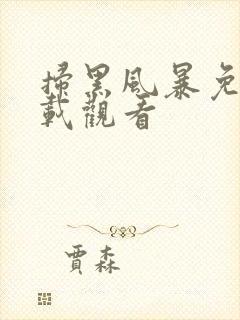 掃黑風暴免
載觀看
賈森